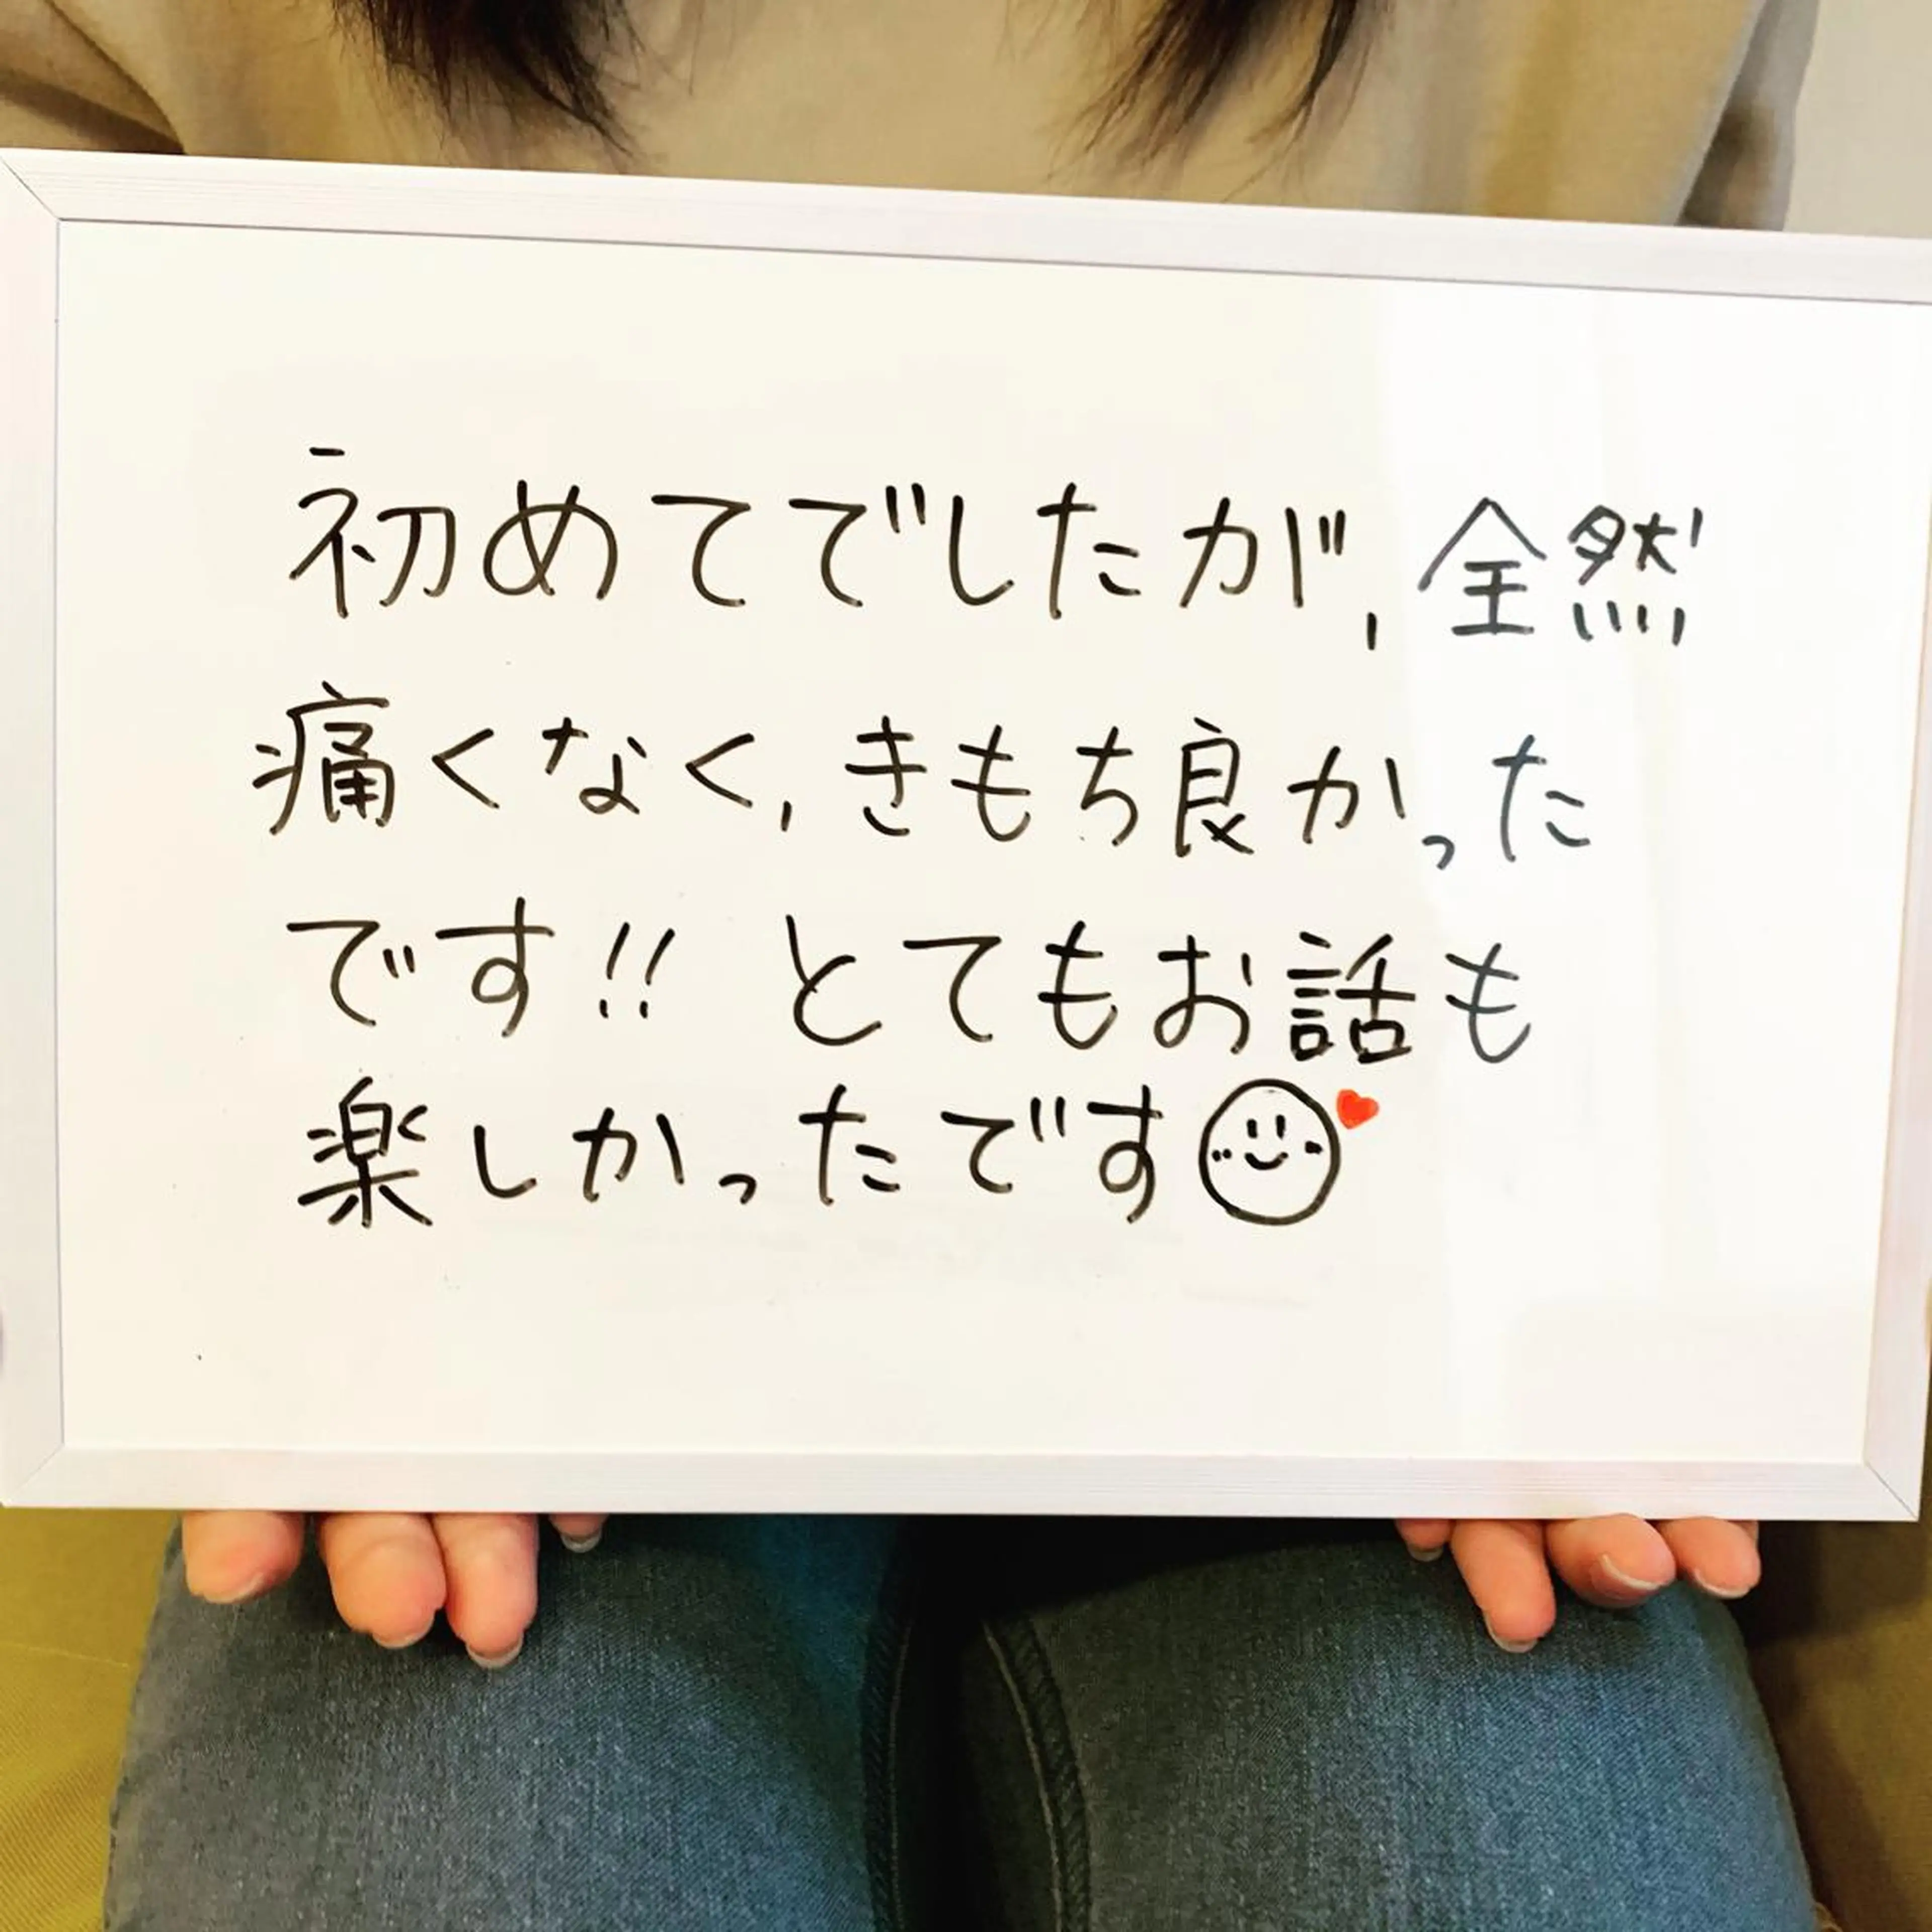 初めてでしたが、全然
痛くなく、きもち良かった
です!! とてもお話も
楽しかったです